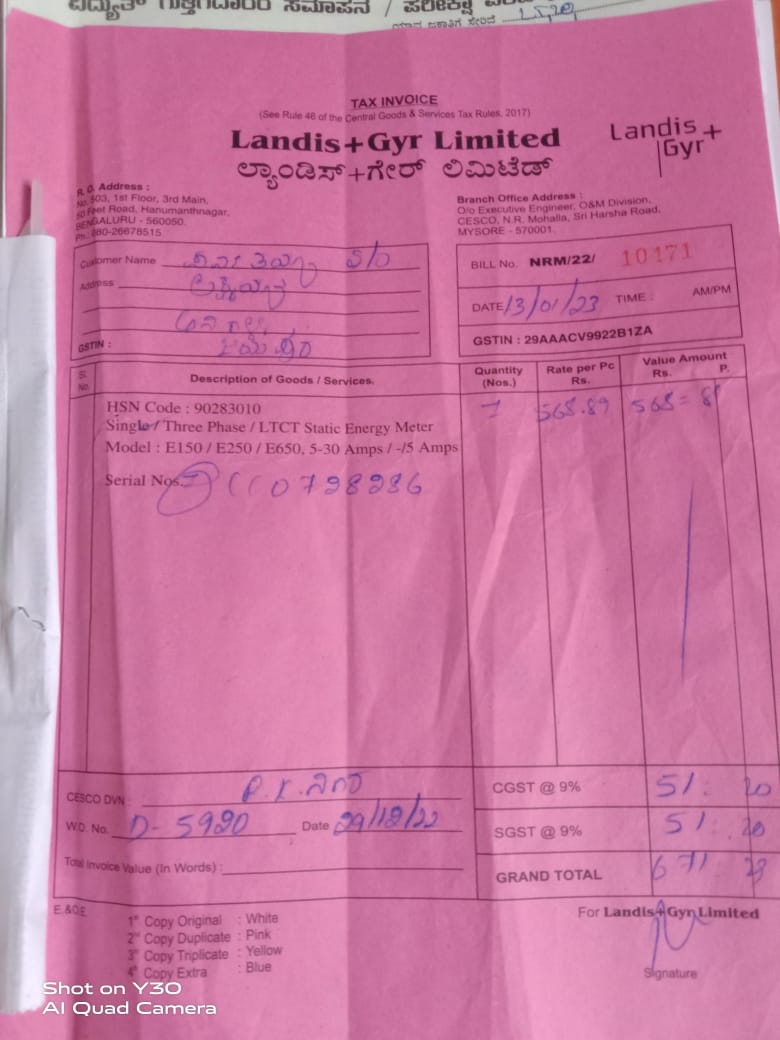 ವಿದ್ಯುತ್ ಗುತ್ತಿಗೆದಾರರ ಸಮಾಪನ / ಪರೀಕ್ಷಾ
TAX INVOICE
(See Rule 46 of the Central Goods & Services Tax Rules, 2017)
Landis+Gyr Limited
ಲ್ಯಾಂಡಿಸ್+ಗೇರ್ ಲಿಮಿಟೆಡ್
Landis+
Gyr+
R. O. Address :
No. 503, 1st Floor, 3rd Main,
Feet Road, Hanumanthnagar,
BENGALURU - 560050.
Ph: 080-26678515
Branch Office Address :
O/o Executive Engineer, O&M Division,
CESCO, N.R. Mohalla, Sri Harsha Road,
MYSORE - 570001.
Customer Name S/o
Address
GSTIN :
BILL No. NRM/22/ 10171
DATE 13/01/23 TIME : AM/PM
GSTIN : 29AAACV9922B1ZA
Sl. No. Description of Goods / Services. Quantity (Nos.) Rate per Pc Rs. Value Amount Rs. P.
HSN Code : 90283010 1 568.89 568=89
Single / Three Phase / LTCT Static Energy Meter
Model : E150 / E250 / E650, 5-30 Amps / -/5 Amps
Serial Nos.
CESCO DVN :
W.O. No. D-5920 Date 29/12/22
Total Invoice Value (In Words) :
CGST @ 9% 51: 20
SGST @ 9% 51: 20
GRAND TOTAL 671:
E.&O.E
1st Copy Original : White
2nd Copy Duplicate : Pink
3rd Copy Triplicate : Yellow
4th Copy Extra : Blue
For Landis+Gyr Limited
Signature
Shot on Y30
AI Quad Camera